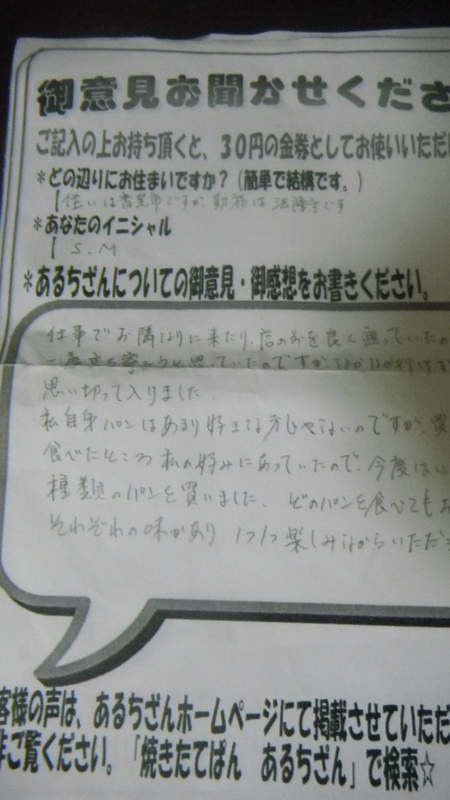 御意見お聞かせくださ
ご記入の上お持ち頂くと、30円の金券としてお使いいただけ
*どの辺りにお住まいですか？(簡単で結構です。)
住いは香芝市ですが勤務は法隆寺です
*あなたのイニシャル
S.M
*あるちざんについての御意見・御感想をお書きください。
仕事でお隣に来たり、店の前を良く通っていたの
一度
思い切って入りました。
私自身パンはあまり好きな方じゃないのですが、買
食べたところ私の好みにあっていたので、今度はい
種類のパンを買いました。どのパンを食べてもお
それぞれの味があり 1つ1つ楽しみながらいただき
客様の声は、あるちざんホームページにて掲載させていただ
非ご覧ください。「焼きたてぱん あるちざん」で検索☆